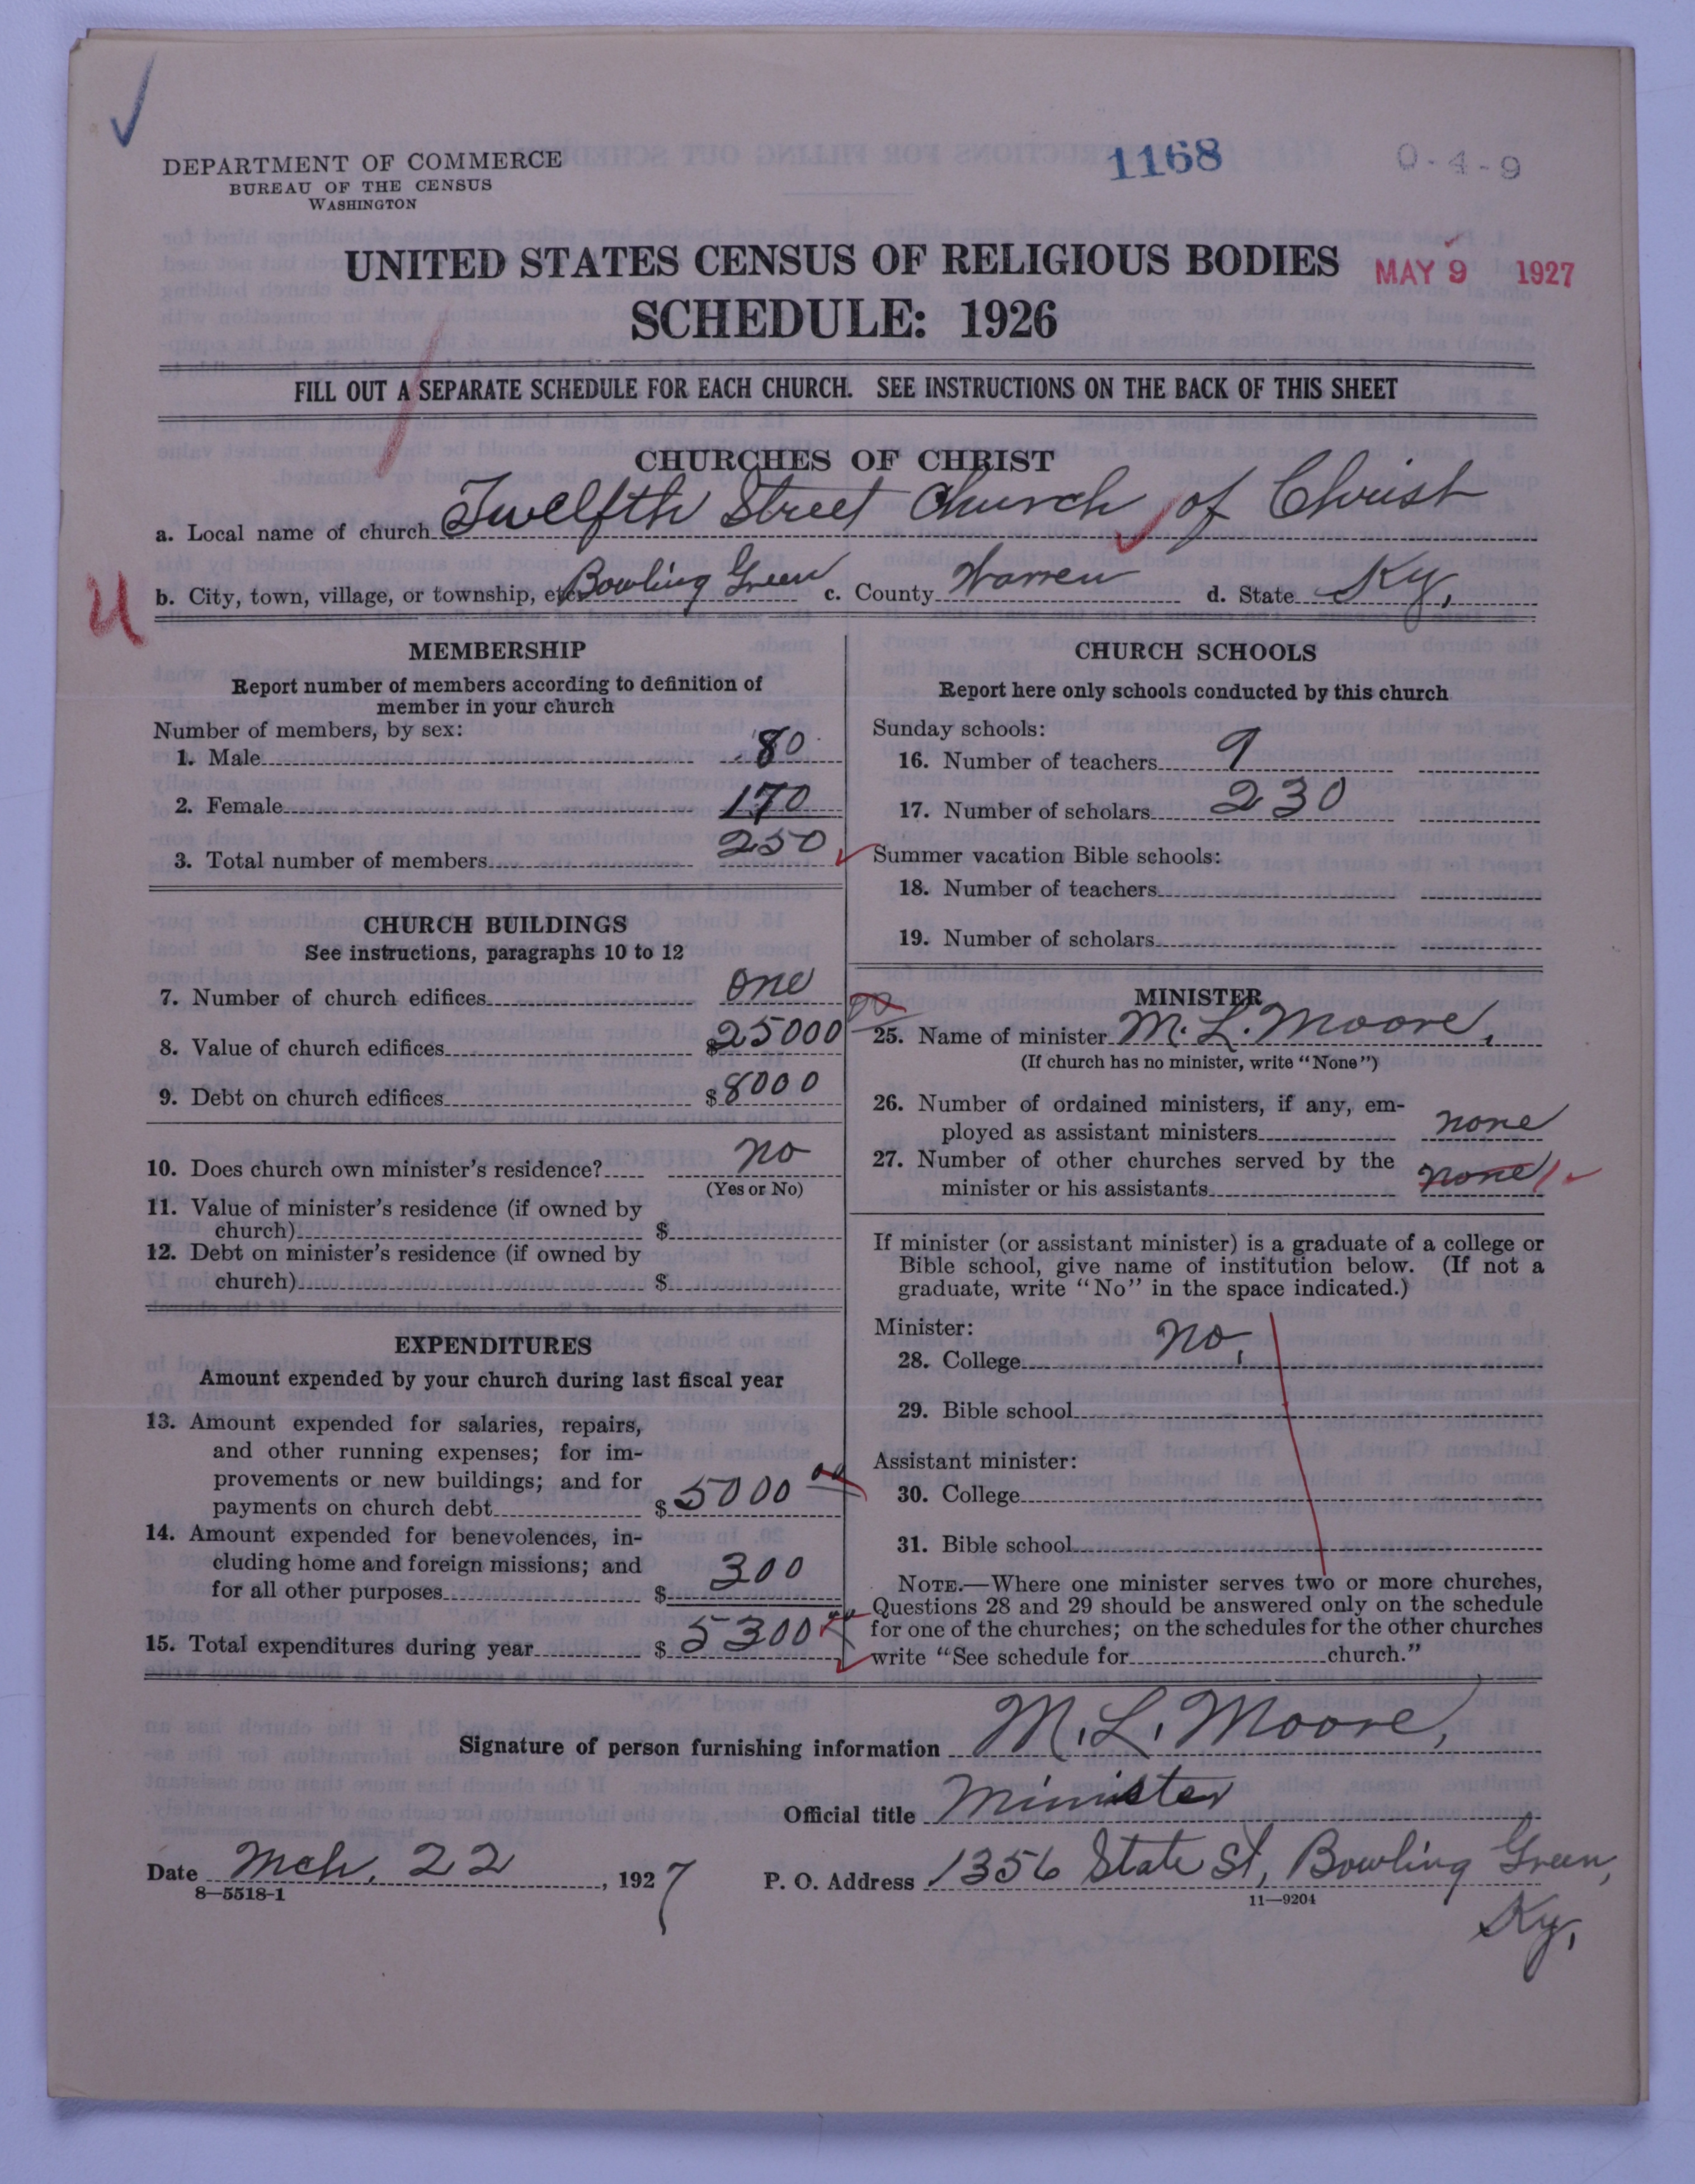 1168
0-4-9
DEPARTMENT OF COMMERCE
BUREAU OF THE CENSUS
WASHINGTON
UNITED STATES CENSUS OF RELIGIOUS BODIES
MAY 9 1927
SCHEDULE: 1926
FILL OUT A SEPARATE SCHEDULE FOR EACH CHURCH. SEE INSTRUCTIONS ON THE BACK OF THIS SHEET
CHURCHES OF CHRIST
a. Local name of church Twelfth Street Church of Christ
b. City, town, village, or township, etc. Bowling Green c. County Warren d. State Ky.
MEMBERSHIP
Report number of members according to definition of
member in your church
Number of members, by sex:
1. Male 80
2. Female 170
3. Total number of members 250
CHURCH BUILDINGS
See instructions, paragraphs 10 to 12
7. Number of church edifices one
8. Value of church edifices $25000 00
9. Debt on church edifices $8000
10. Does church own minister's residence? no
(Yes or No)
11. Value of minister's residence (if owned by
church) $
12. Debt on minister's residence (if owned by
church) $
EXPENDITURES
Amount expended by your church during last fiscal year
13. Amount expended for salaries, repairs,
and other running expenses; for im-
provements or new buildings; and for
payments on church debt $5000 00
14. Amount expended for benevolences, in-
cluding home and foreign missions; and
for all other purposes $300
15. Total expenditures during year $5300 00
CHURCH SCHOOLS
Report here only schools conducted by this church
Sunday schools:
16. Number of teachers 9
17. Number of scholars 230
Summer vacation Bible schools:
18. Number of teachers
19. Number of scholars
MINISTER
25. Name of minister M. L. Moore,
(If church has no minister, write "None")
26. Number of ordained ministers, if any, em-
ployed as assistant ministers none
27. Number of other churches served by the
minister or his assistants none 1
If minister (or assistant minister) is a graduate of a college or
Bible school, give name of institution below. (If not a
graduate, write "No" in the space indicated.)
Minister:
28. College no.
29. Bible school
Assistant minister:
30. College
31. Bible school
NOTE.—Where one minister serves two or more churches,
Questions 28 and 29 should be answered only on the schedule
for one of the churches; on the schedules for the other churches
write "See schedule for church."
Signature of person furnishing information M. L. Moore,
Official title Minister
Date Mch. 22, 1927 P. O. Address 1356 State St, Bowling Green,
Ky.
8—5518-1
11—9204